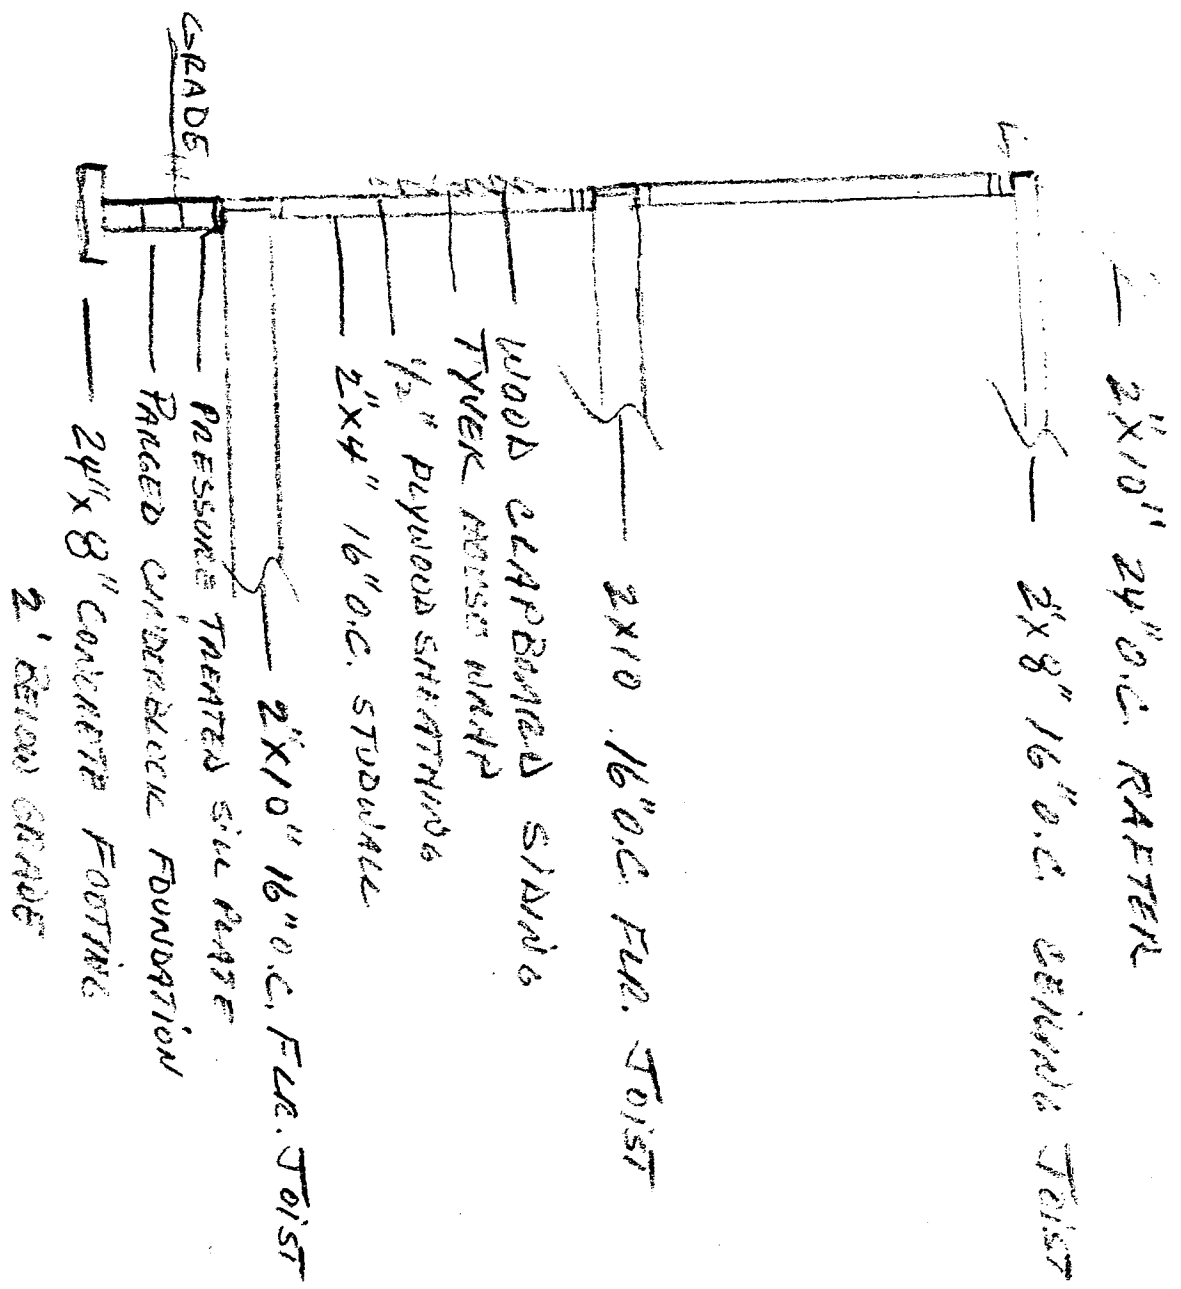 2"X10" 24" O.C. RAFTER
2"X8" 16" O.C. CEILING JOIST
2X10 16" O.C. FLR. JOIST
WOOD CLAPBOARD SIDING
TYVEK HOUSE WRAP
1/2" PLYWOOD SHEATHING
2"X4" 16" O.C. STUDWALL
2"X10" 16" O.C. FLR. JOIST
PRESSURE TREATED SILL PLATE
PARGED CINDERBLOCK FOUNDATION
24"X8" CONCRETE FOOTING
2' BELOW GRADE
GRADE